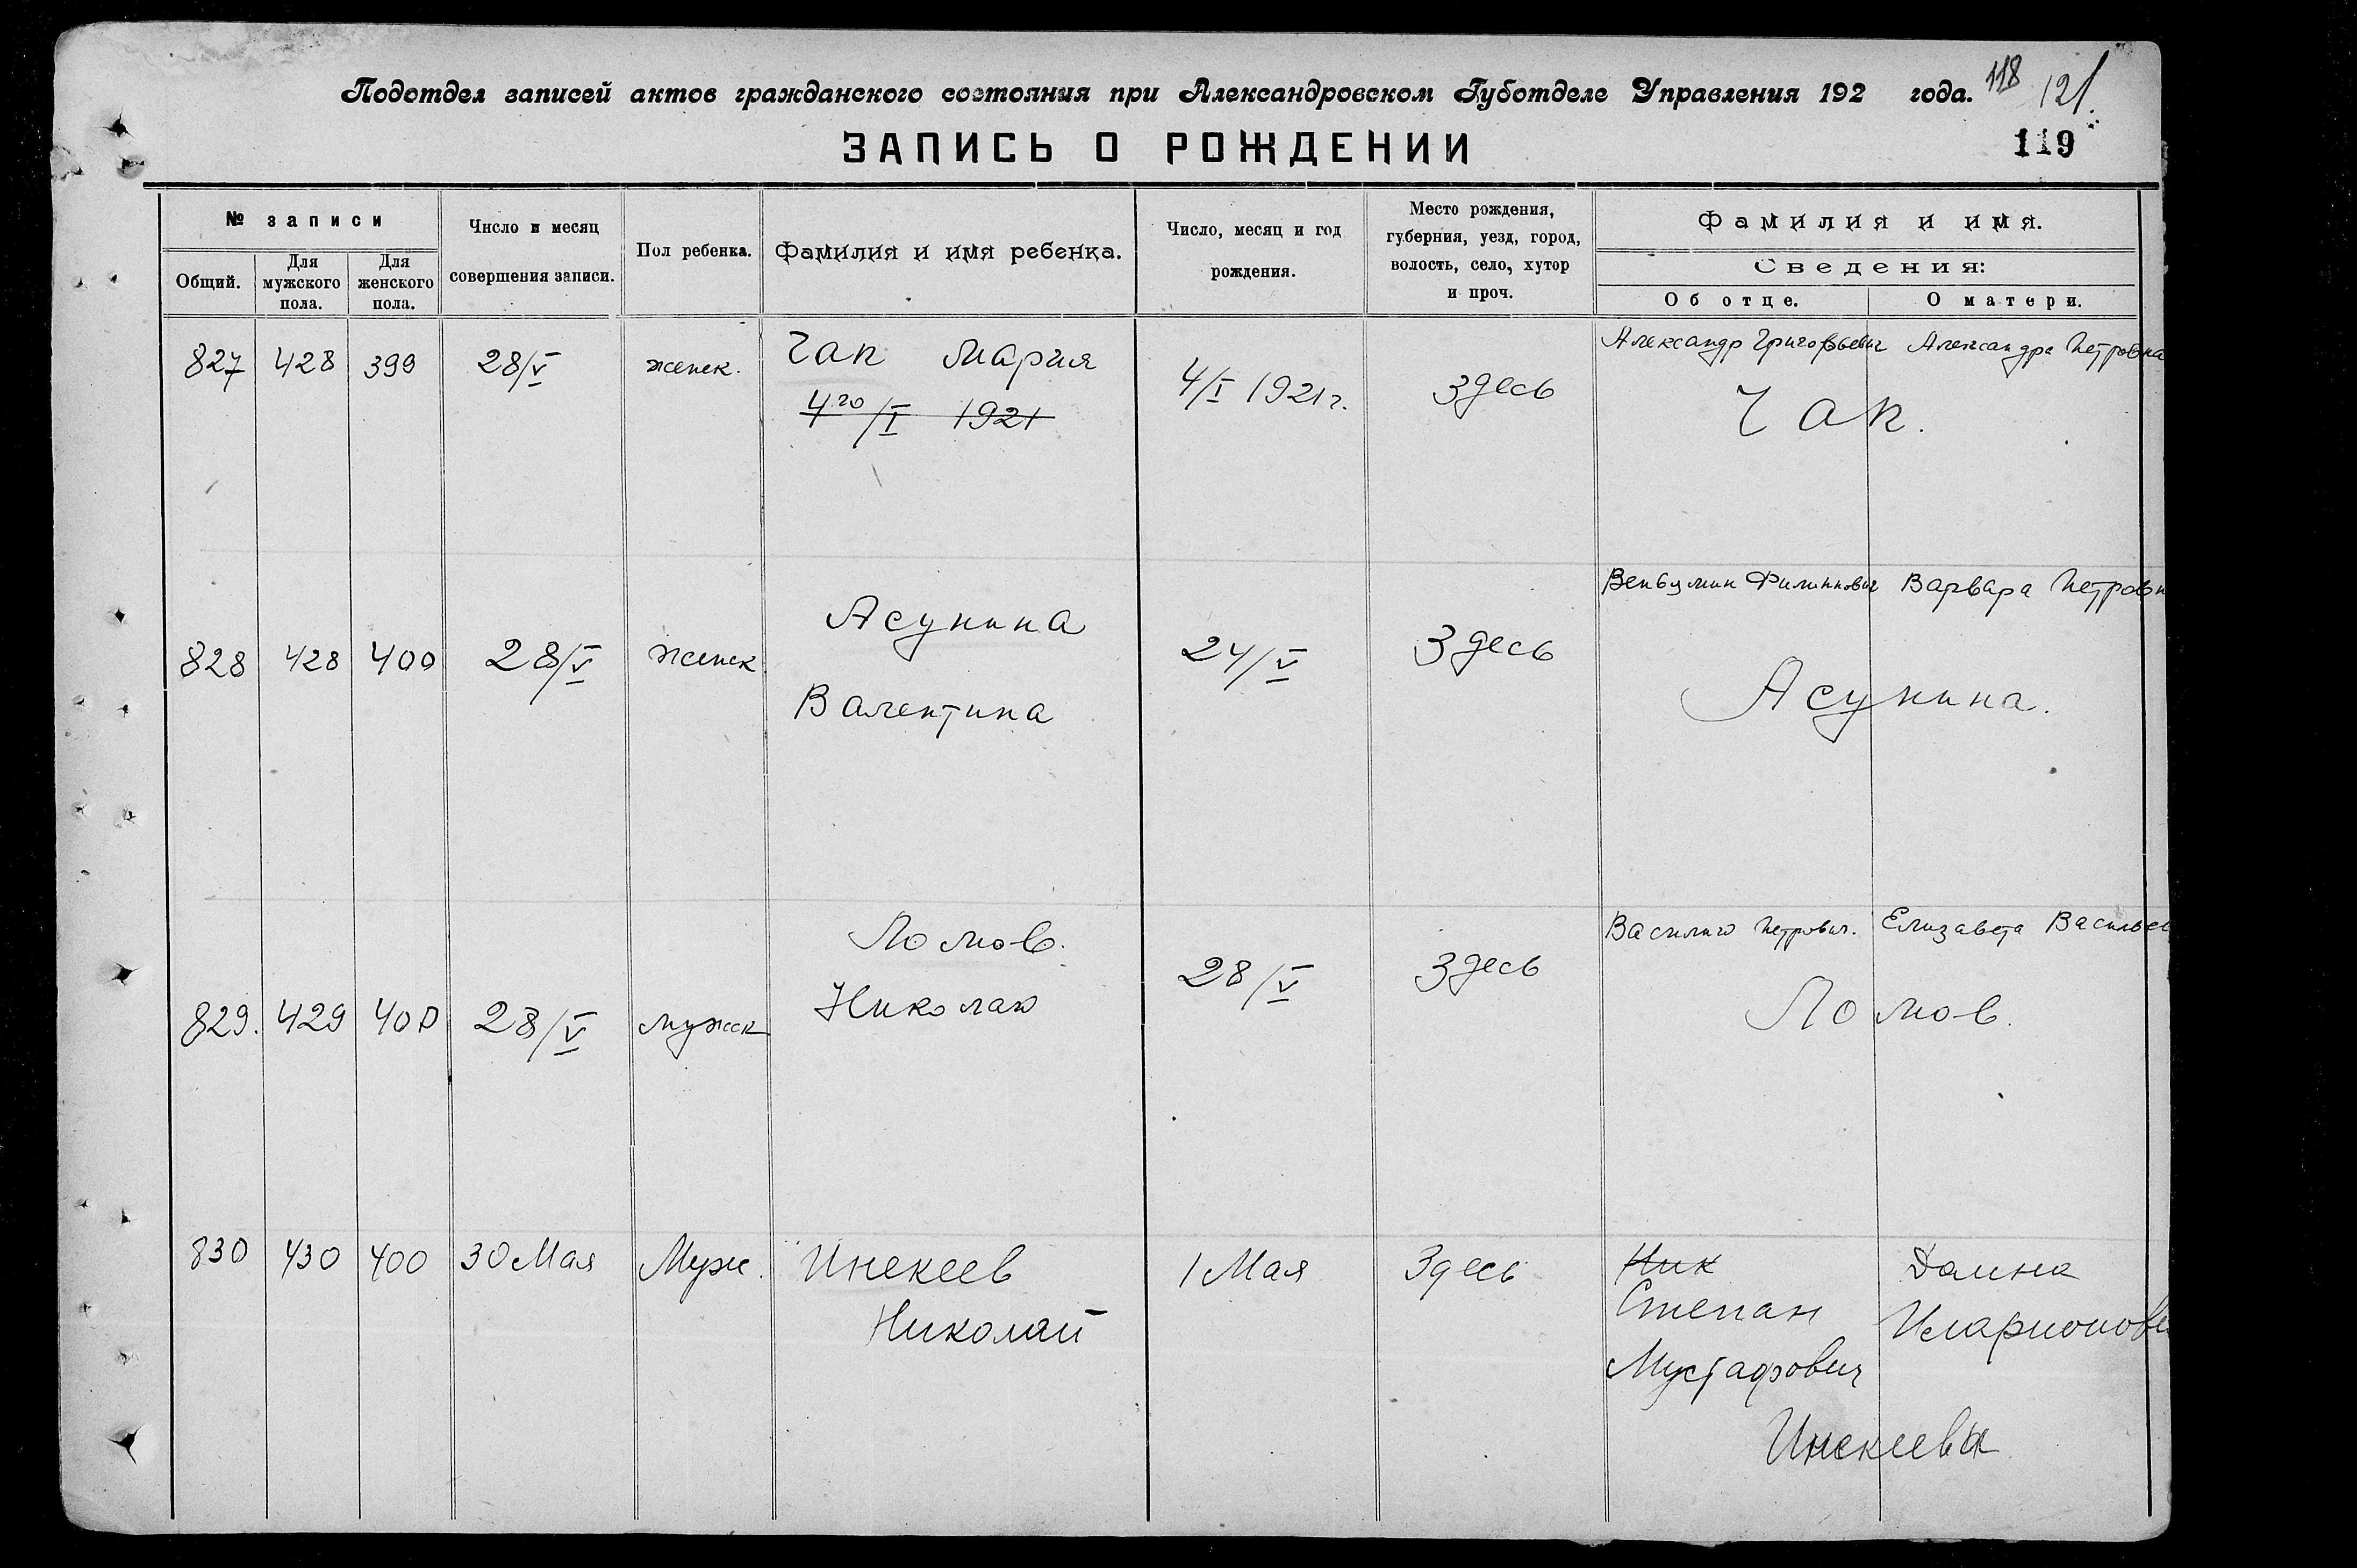 Подотдел записей актов гражданского состояния при Александровском Губотделе Управления 192 года.
118 121.
ЗАПИСЬ О РОЖДЕНИИ
119
№ записи
Общий.
Для мужского пола.
Для женского пола.
Число и месяц совершения записи.
Пол ребенка.
Фамилия и имя ребенка.
Число, месяц и год рождения.
Место рождения, губерния, уезд, город, волость, село, хутор и проч.
Фамилия и имя.
Сведения:
Об отце.
О матери.
827 428 399 28/V женск. Чап Мария 4/I 1921 г. здесь Александр Григорьевич Александра Петровна
4го/I 1921
Чап.
828 428 400 28/V женск Асунина 24/V Здесь Веньумин Филиппович Варвара Петровн
Валентина
Асунина.
829. 429 400 28/V мужск Ломов. 28/V Здесь Василию Петрович. Елизавета Васильев
Николаю
Ломов.
830 430 400 30 Мая Муж. Инекеев 1 Мая Здесь Ник
Николай
Степан Иларионовн
Мустафович
Инекеевы